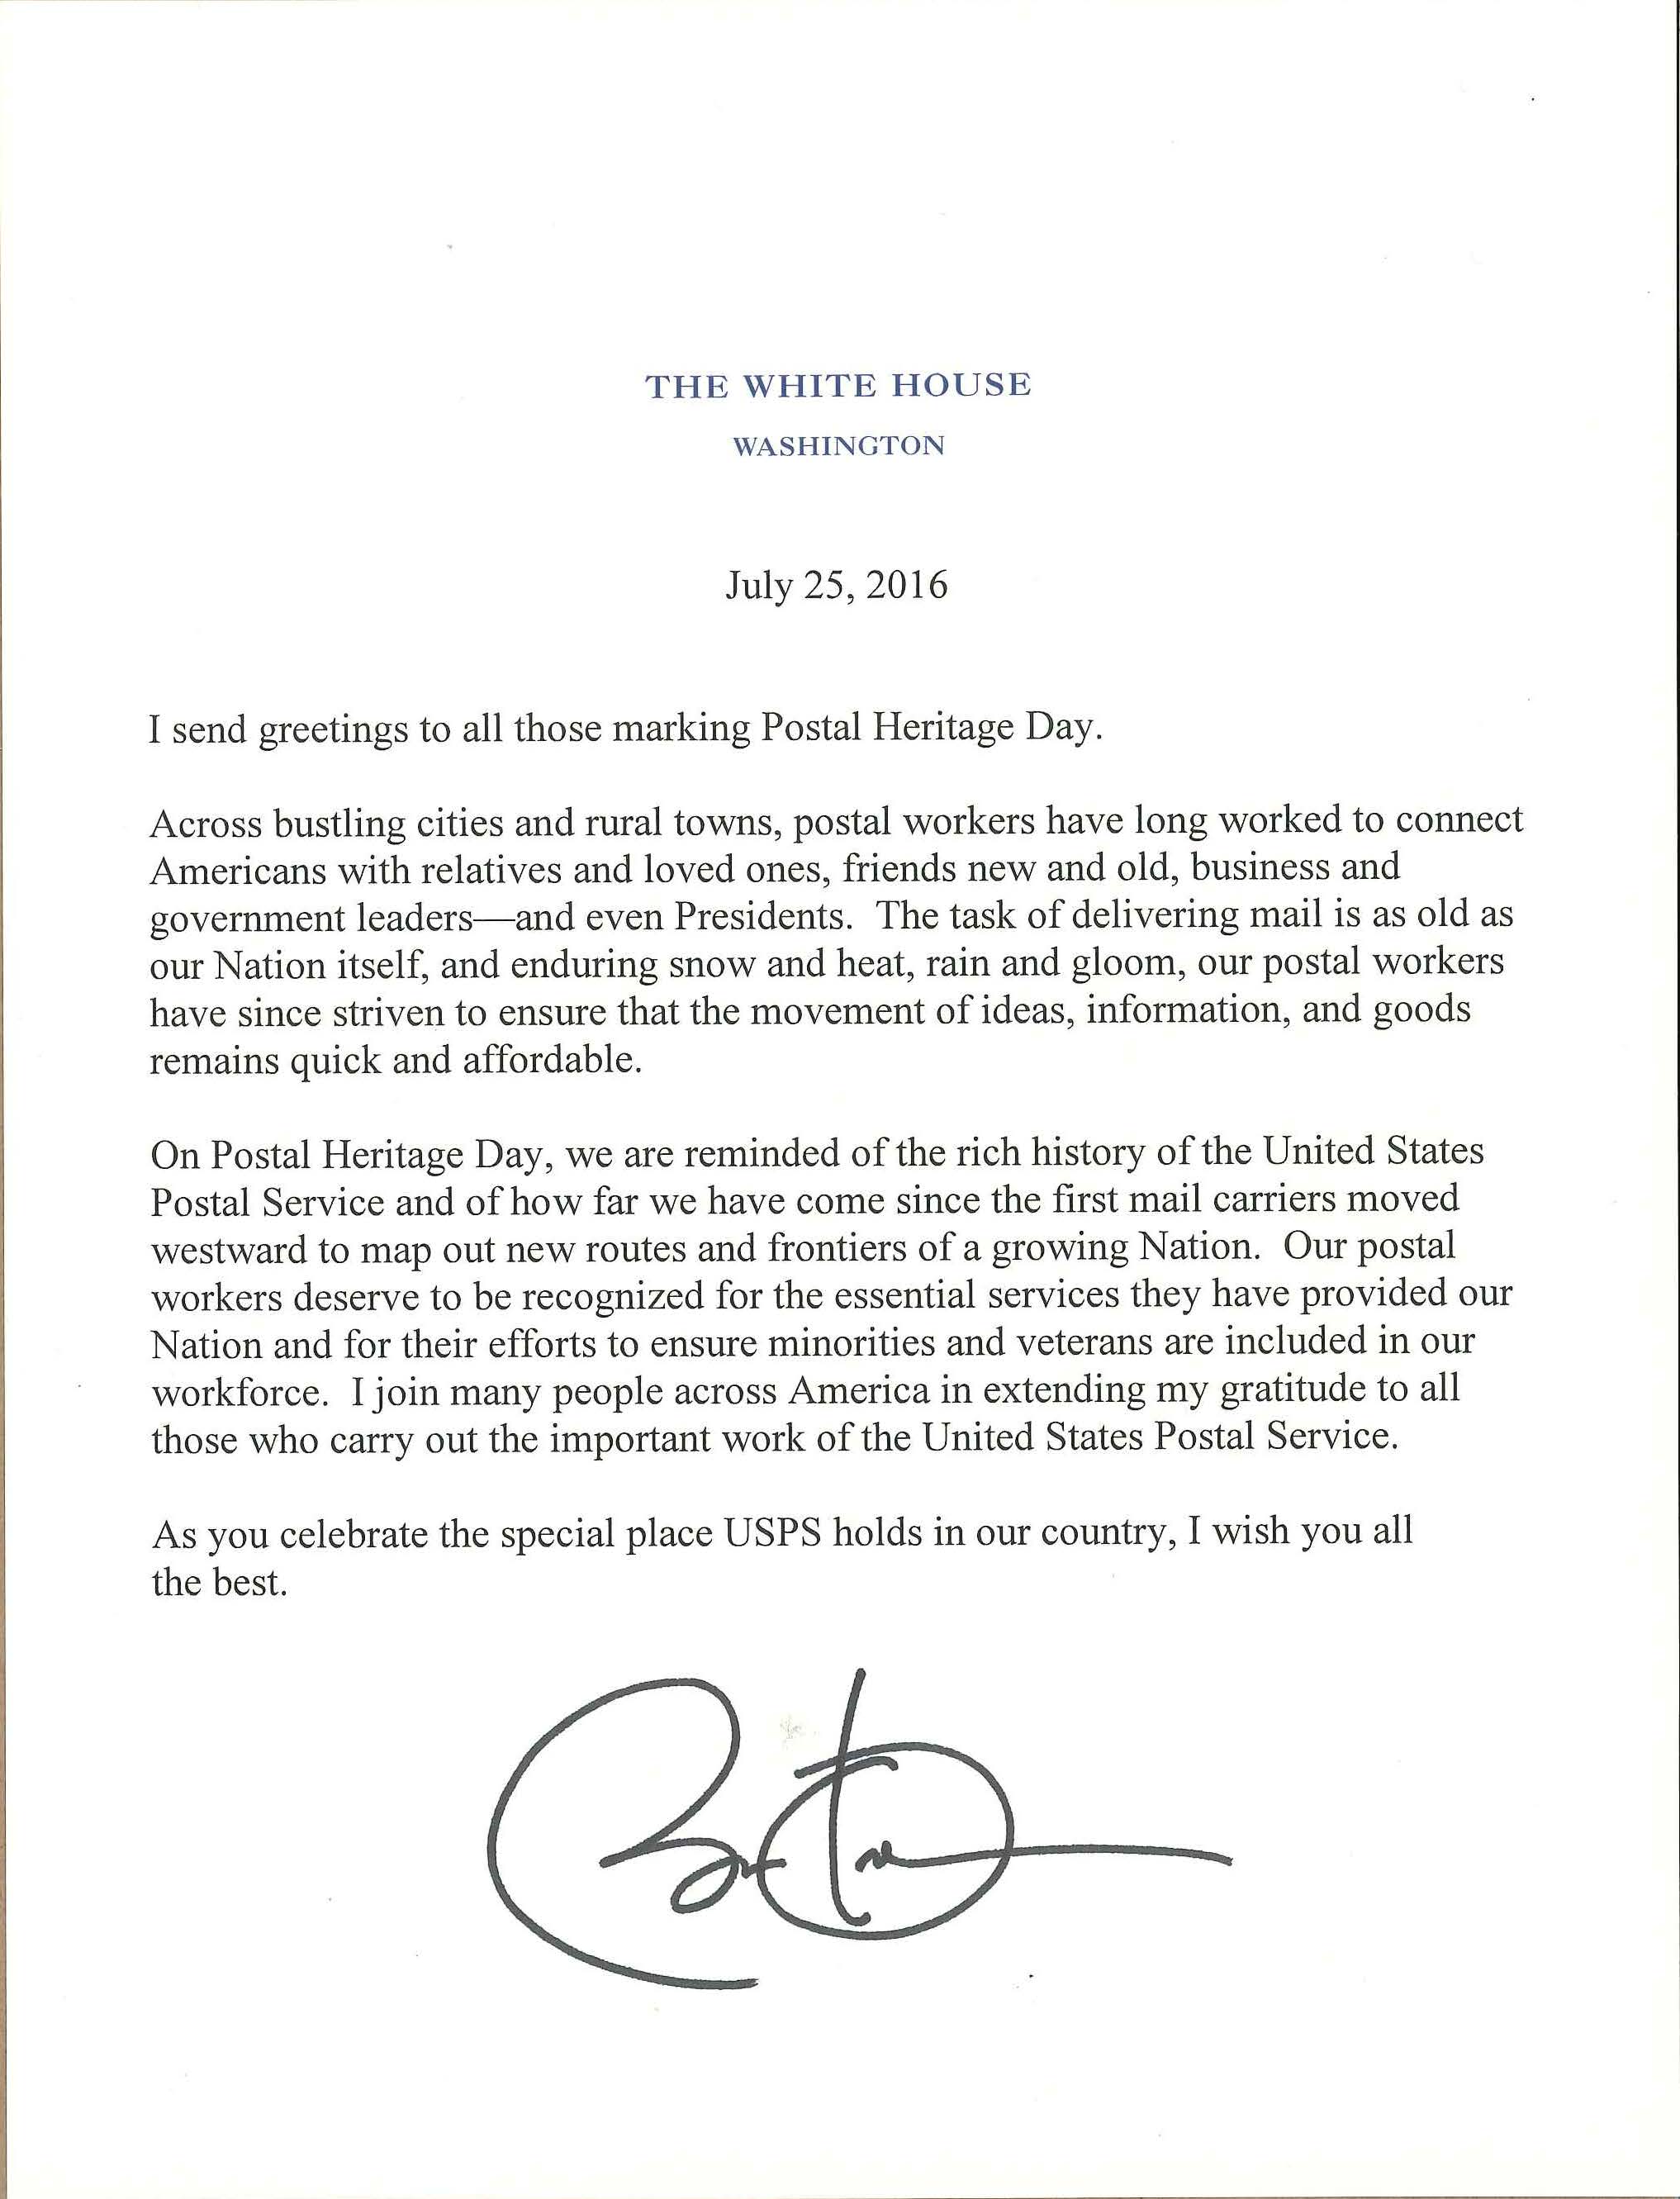 THE WHITE HOUSE
WASHINGTON
July 25, 2016
I send greetings to all those marking Postal Heritage Day.
Across bustling cities and rural towns, postal workers have long worked to connect
Americans with relatives and loved ones, friends new and old, business and
government leaders—and even Presidents.  The task of delivering mail is as old as
our Nation itself, and enduring snow and heat, rain and gloom, our postal workers
have since striven to ensure that the movement of ideas, information, and goods
remains quick and affordable.
On Postal Heritage Day, we are reminded of the rich history of the United States
Postal Service and of how far we have come since the first mail carriers moved
westward to map out new routes and frontiers of a growing Nation.  Our postal
workers deserve to be recognized for the essential services they have provided our
Nation and for their efforts to ensure minorities and veterans are included in our
workforce.  I join many people across America in extending my gratitude to all
those who carry out the important work of the United States Postal Service.
As you celebrate the special place USPS holds in our country, I wish you all
the best.